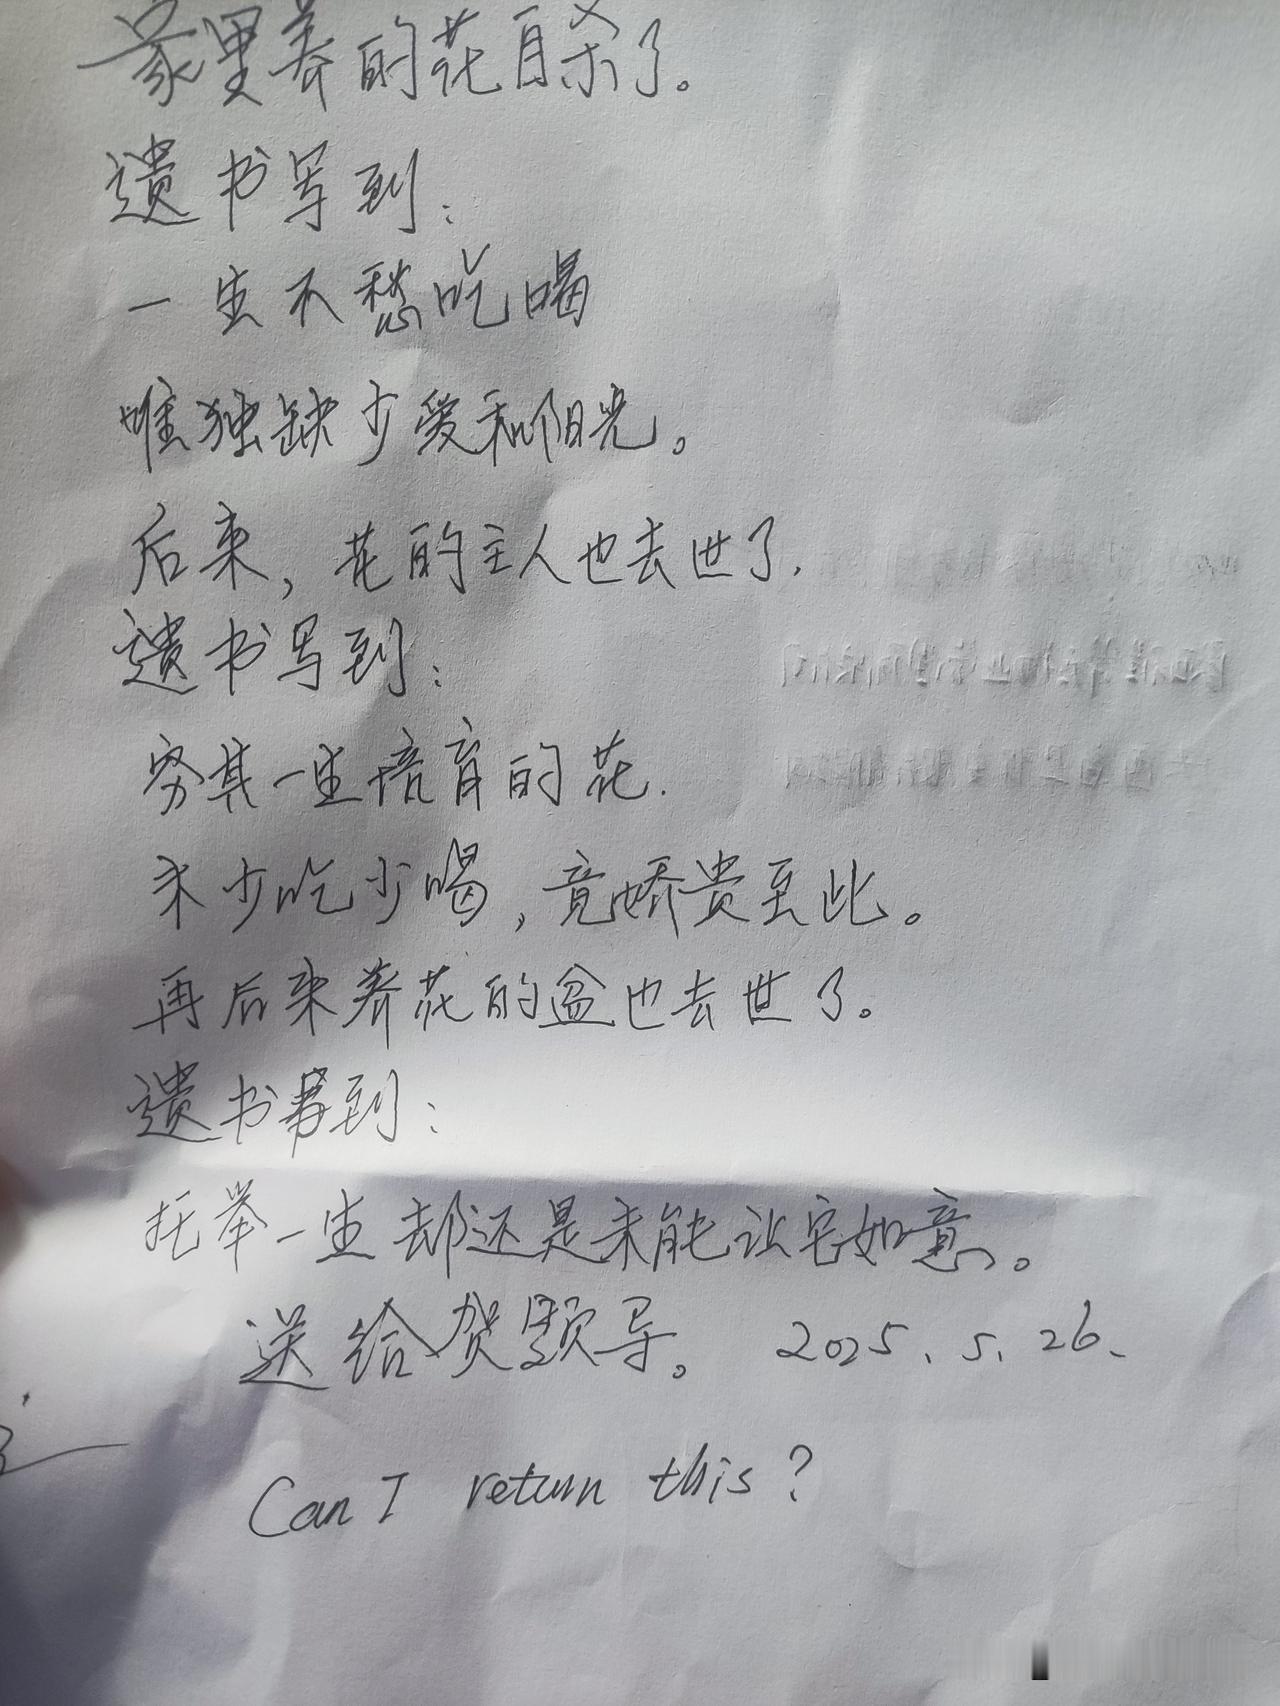 家里养的花自杀了。
遗书写到:
一生不愁吃喝
唯独缺少爱和阳光。
后来,花的主人也去世了.
遗书写到:
穷其一生培育的花.
未少吃少喝,竟娇贵至此。
再后来养花的盆也去世了。
遗书写到:
托举一生却还是未能让它如意。
送给贺颢导。 2025.5.26.
Can I return this?